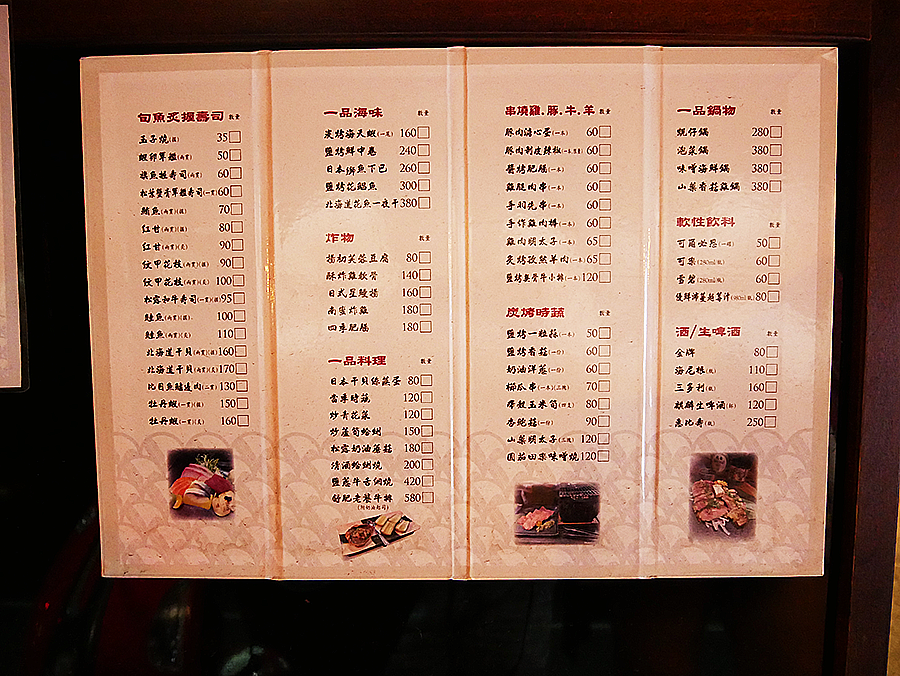 旬魚炙握壽司 數量
玉子燒(握) 35
蝦卵軍艦(兩貫) 50
旗魚握壽司(兩貫) 60
松葉蟹膏軍艦壽司(一貫) 60
鮪魚(兩貫)(握) 70
紅甘(兩貫)(握) 80
紅甘(兩貫)(炙) 90
紋甲花枝(兩貫)(握) 90
紋甲花枝(兩貫)(炙) 100
松露和牛壽司(一貫)(握) 95
鮭魚(兩貫)(握) 100
鮭魚(兩貫)(炙) 110
北海道干貝(兩貫)(握) 160
北海道干貝(兩貫)(炙) 170
比目魚鰭邊肉(二貫) 130
牡丹蝦(一貫)(握) 150
牡丹蝦(一貫)(炙) 160
一品海味 數量
炭烤海天蝦(一尾) 160
鹽烤鮮中卷 240
日本鰤魚下巴 260
鹽烤花鯽魚 300
北海道花魚一夜干 380
炸物 數量
揚初芙蓉豆腐 80
酥炸雞軟骨 140
日式星鰻揚 160
南蠻炸雞 180
四季肥腸 180
一品料理 數量
日本干貝絲蒸蛋 80
當季時蔬 120
炒青花菜 120
炒蘆筍蛤蜊 150
松露奶油蘑菇 180
清酒蛤蜊燒 200
鹽蔥牛舌網燒 420
舒肥老饕牛排 580
(附奶油起司)
串燒雞.豚.牛.羊 數量
豚肉溏心蛋(一本) 60
豚肉剝皮辣椒(一本) 60
醬烤肥腸(一本) 60
雞腿肉串(一本) 60
手羽先串(一本) 60
手作雞肉棒(一本) 60
雞肉明太子(一本) 65
炙烤孜然羊肉(一本) 65
鹽烤無骨牛小排(一本) 120
炭烤時蔬 數量
鹽烤一粒蒜(一本) 50
鹽烤香菇(一份) 60
奶油洋蔥(一份) 60
櫛瓜串(一本)(三塊) 70
帶殼玉米筍(四支) 80
杏鮑菇(一份) 90
山藥明太子(三塊) 120
圓茄田樂味噌燒 120
一品鍋物 數量
蚵仔鍋 280
泡菜鍋 380
味噌海鮮鍋 380
山藥香菇雞鍋 380
軟性飲料 數量
可爾必思(一杯) 50
可樂(250ml/瓶) 60
雪碧(250ml/瓶) 60
優鮮沛蔓越莓汁(982ml/瓶) 80
酒/生啤酒 數量
金牌 80
海尼根(瓶) 110
三多利(瓶) 160
麒麟生啤酒(杯) 120
惠比壽(瓶) 250